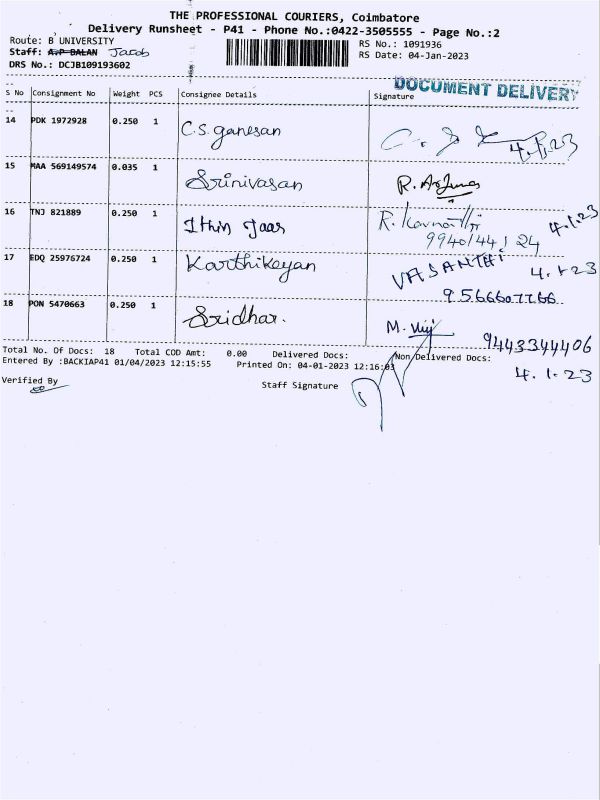 THE PROFESSIONAL COURIERS, Coimbatore
Delivery Runsheet - P41 - Phone No.:0422-3505555 - Page No.:2
Route: B UNIVERSITY
RS No.: 1091936
Staff: A.P BALAN Jacob
RS Date: 04-Jan-2023
DRS No.: DCJB109193602
DOCUMENT DELIVERY
S No Consignment No Weight PCS Consignee Details Signature
14 PDK 1972928 0.250 1 C.S. ganesan 4.1.23
15 MAA 569149574 0.035 1 Srinivasan R. Arjuna
16 TNJ 821889 0.250 1 4.1.23
17 EDQ 25976724 0.250 1 Karthikeyan VASANTHI 4.1.23
18 PON 5470663 0.250 1 Sridhar. M. 9443344406
Total No. Of Docs: 18 Total COD Amt: 0.00 Delivered Docs: Non Delivered Docs:
Entered By :BACKIAP41 01/04/2023 12:15:55 Printed On: 04-01-2023 12:16:03
4.1.23
Verified By
Staff Signature